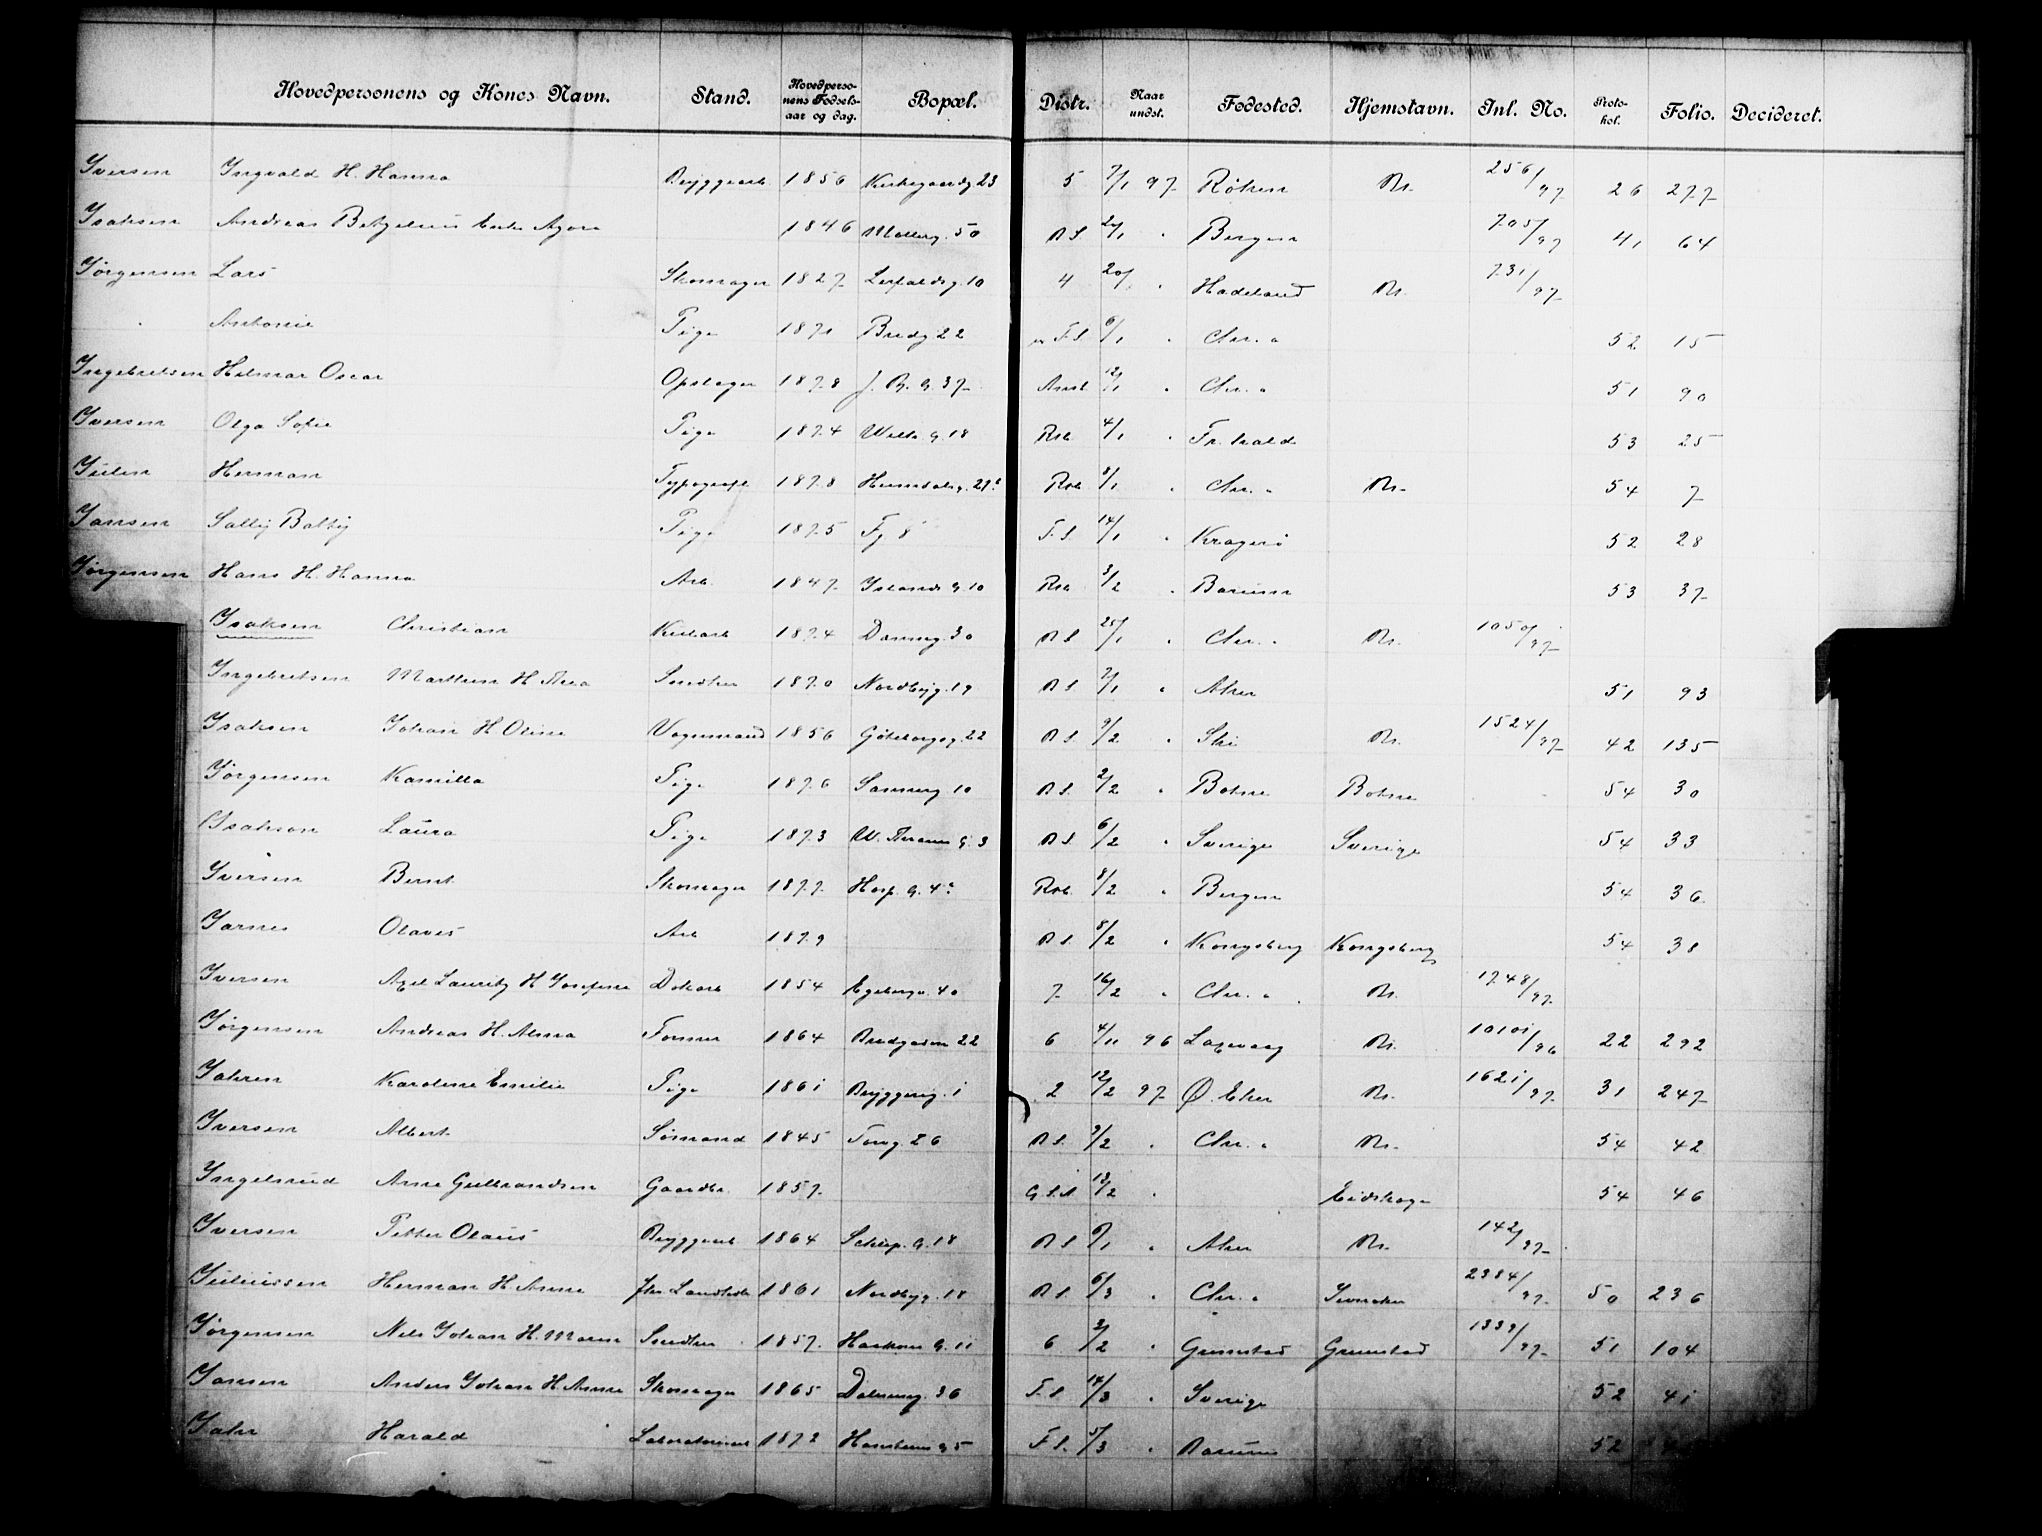 Hovedpersonens og Kones Navn. Stand. Hovedpersonens Fødselsaar og dag. Bopæl. Distr. Naar undst. Fødested. Hjemstavn. Inl. No. Protokol. Folio. Decideret.
Iversen Ingvald H. Hanna Bryggearb 1856 Kirkegaardg 23 5 7/1 97 Røken Kr. 256/97 26 277
Isaksen Andreas Enke 1846 Møllerg. 50 20/1 " Bergen 705/97 41 64
Jørgensen Lars Skomager 1827 Lerfaldsg. 10 4 20/1 " Hadeland Kr. 731/97
" Antonie Pige 1871 Bredg 22 F.S 6/1 " Chr. a 52 15
Ingebretsen Hilmar Oscar Opslager 1878 J. B. G. 37 Anst. 12/1 " Chr. a 51 90
Iversen Olga Sofie Pige 1874 Welh. G. 18 Rob. 4/1 " Fr. hald 53 25
Juden Herman Typograf 1878 Rob. 8/1 " Chr. a Kr. 54 7
Jansen Sally Betty Pige 1875 F.S. 14/1 " Kragerø 52 28
Jørgensen Hans H. Hanna Arb. 1847 Islands G. 10 Rob. 3/2 " Bærum 53 37
Isaksen Christian 1874 Dannevg. 30 R S 25/1 " Chr. a Kr. 1050/97
Ingebretsen Martin H. Thea Smed 1870 Nordbyg. 19 R S. 7/1 " Aker 51 93
Isaksen Johan H Oline Vognmand 1856 Göteborgg. 22 R S. 9/2 " Ski Kr. 1524/97 42 135
Jørgensen Kamilla Pige 1876 Sannerg. 10 R S. 2/2 " Botne Botne 54 30
Isakson Laura Pige 1873 W. Thranes G. 3 R S. 6/2 " Sverige Sverige 54 33
Iversen Bernt Skomager 1877 Hosp. G. 4 Rob. 8/2 " Bergen 54 36
Jarnes Olaves Arb 1879 R S. 8/2 " Kongsberg Kongsberg 54 38
Iversen Axel Lauritz H Josefine 1854 Egebergv. 40 7 16/2 " Chr. a Kr. 1748/97
Jørgensen Andreas H. Alma Former 1864 Bredgaden 22 6 4/11 96 Laxevaag Kr. 10101/96 22 292
Jahren Karoline Emilie Pige 1861 Bryggerg. 1 2 12/2 97 Ø. Eker Kr. 1621/97 31 247
Iversen Albert Sømand 1845 Torvg 26 R S. 9/2 " Chr. a Kr. 54 42
Ingelsrud Arne Gulbrandsen Gaardbr. 1857 13/2 " Eidskoge 54 46
Iversen Petter Olaus Bryggearb 1864 Schlep. G. 18 R S. 9/1 " Aker Kr. 142/97
Juliussen Herman H. Anna 1861 Nordbyg. 18 R S. 6/3 " Chr. a 2384/97 50 236
Jørgensen Nels Johan H. Maren 1857 Haakons G. 11 6 2/2 " Grimstad Grimstad 1339/97 51 104
Jansen Anders Johan H Anna Skomager 1865 F. S 14/3 " Sverige 52 41
Jahr Harald 1872 F S. 5/3 " Bærum 52